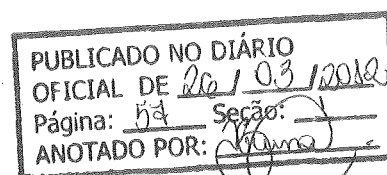 PUBLICADO NO DIÁRIO
OFICIAL DE 26 / 03 / 2012
Página: 57 Seção:
ANOTADO POR: